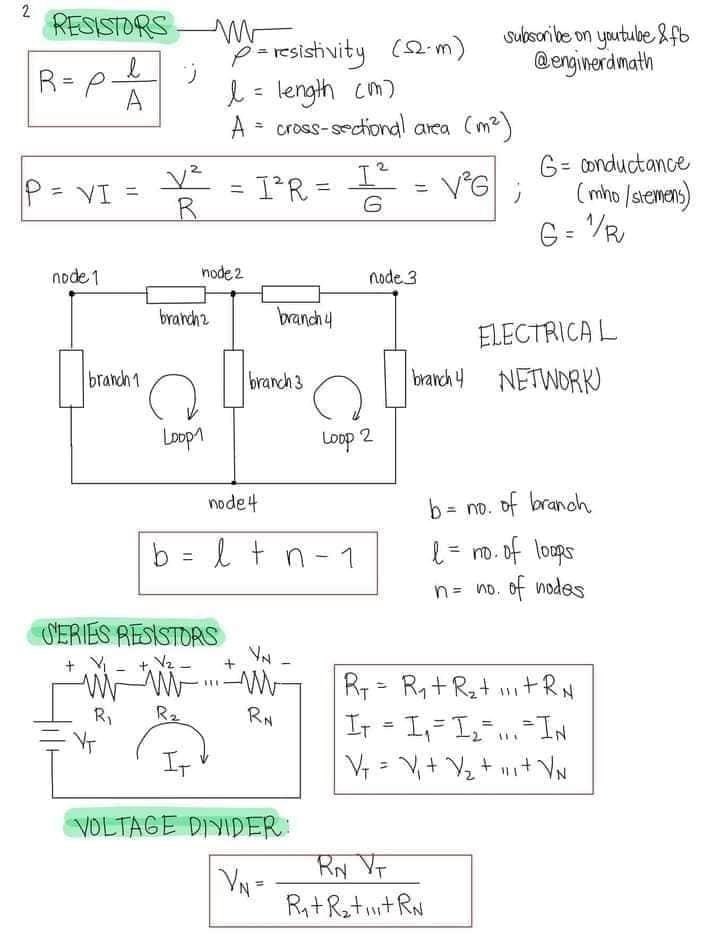 2
RESISTORS
subscribe on youtube & fb
@enginerdmath
R = ρ l/A ;
ρ = resistivity (Ω·m)
l = length (m)
A = cross-sectional area (m²)
P = VI = V²/R = I²R = I²/G = V²G ;
G = conductance
(mho/siemens)
G = 1/R
node 1
node 2
node 3
branch 2
branch 4
branch 1
branch 3
branch 4
Loop 1
Loop 2
node 4
ELECTRICAL
NETWORK
b = l + n - 1
b = no. of branch
l = no. of loops
n = no. of nodes
SERIES RESISTORS
+ V₁ - + V₂ - ... + V_N -
R₁ R₂ R_N
V_T
I_T
R_T = R₁ + R₂ + ... + R_N
I_T = I₁ = I₂ = ... = I_N
V_T = V₁ + V₂ + ... + V_N
VOLTAGE DIVIDER:
V_N = R_N V_T / R₁ + R₂ + ... + R_N